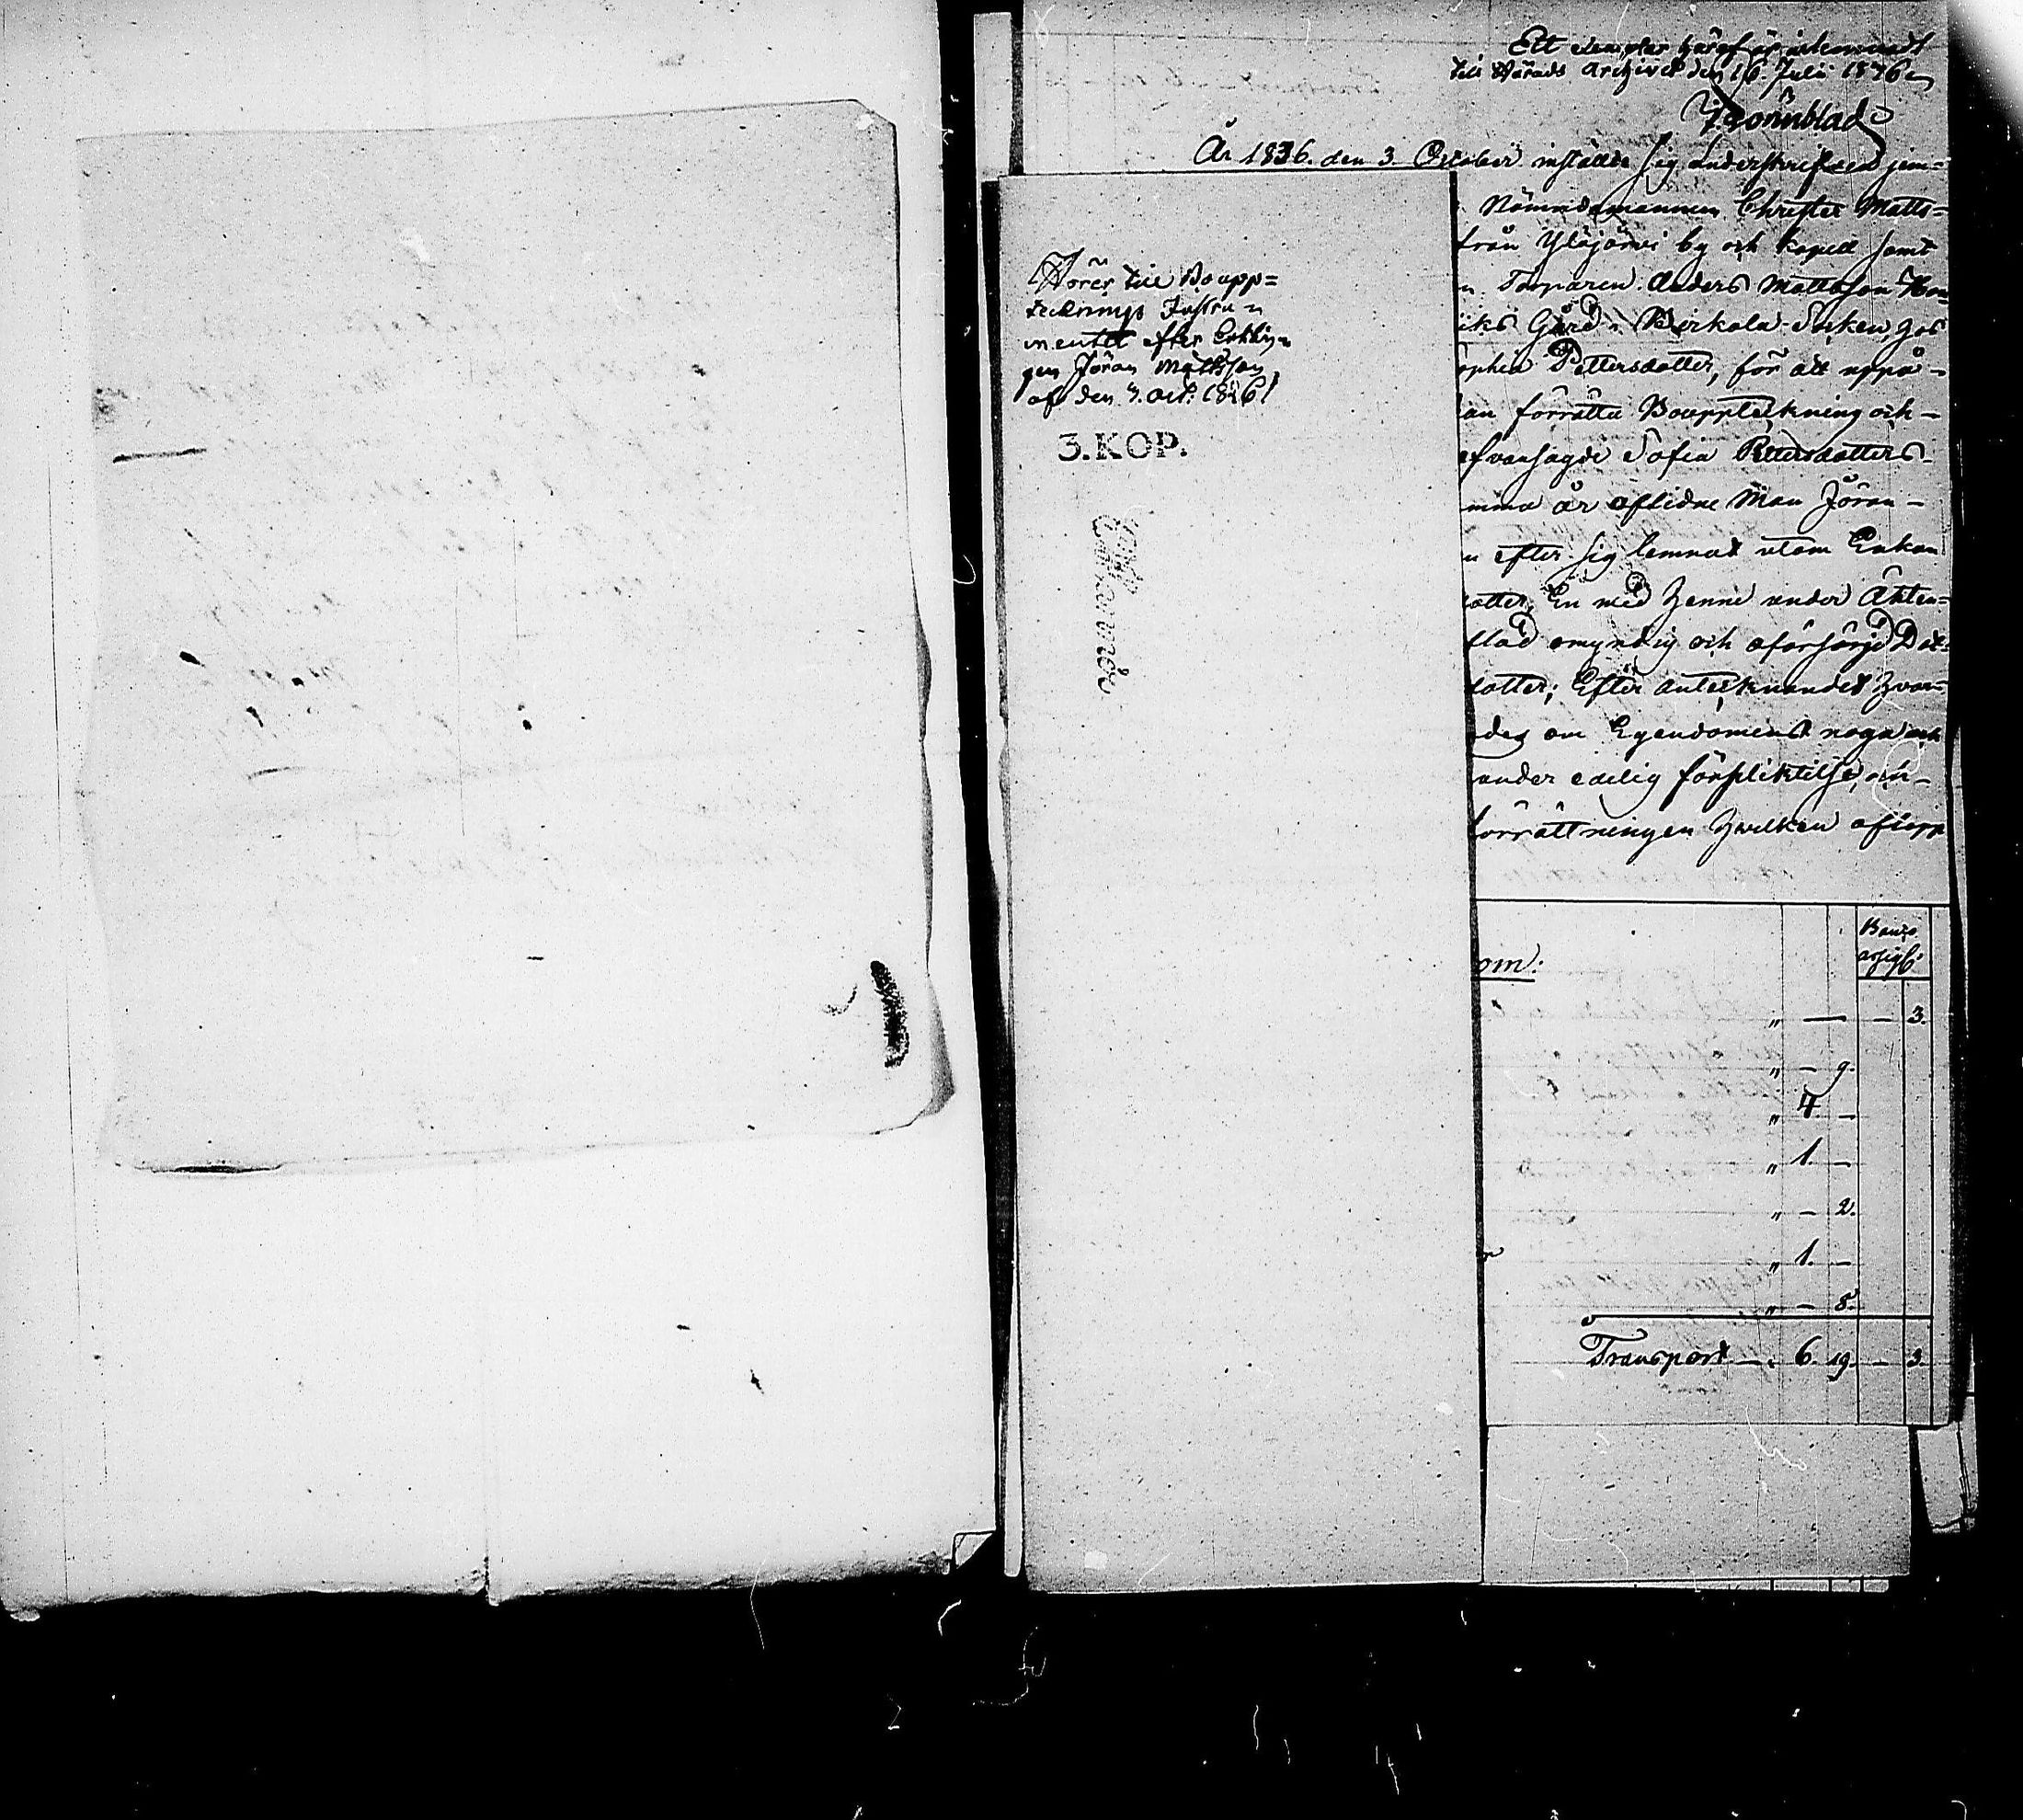 Ett exemplar häraf är inlemnadt
till Härads Archivet den 16 Julii 1836 en
År 1836. den 3. October inställde sig underskrifven jem-
Nämndemannen Christer Matts-
från Ylöjärvi by och Kapell samt
Torparen Anders Mattsson
iks Gård i Birkala Socken, hos
ophia Pettersdotter, för att uppå-
an förrätta Bouppteckning och-
ofvansagde Sofia Pettersdotters-
mma år aflidne Man Jöran-
n efter sig lemnat utom Enkan
otter, En med henne under Äkten-
stad omyndig och oförsörjd Dot-
dotter; Efter antecknandet hvar-
des om Egendomens noga och
under edelig förpliktelse, an-
förrättningen hvilken aflopp
Hörer till Boupp=
tecknings Instru=
mentet efter Enkhy=
gen Jöran Mattsson
af den 3. Oct: 1836
3.KOP.
om:
Banco
assign:
" — — 3.
" — 9.
" 4. —
" 1. —
" — 2.
" 1. —
" — 8.
Transport — " 6. 19. — 3.